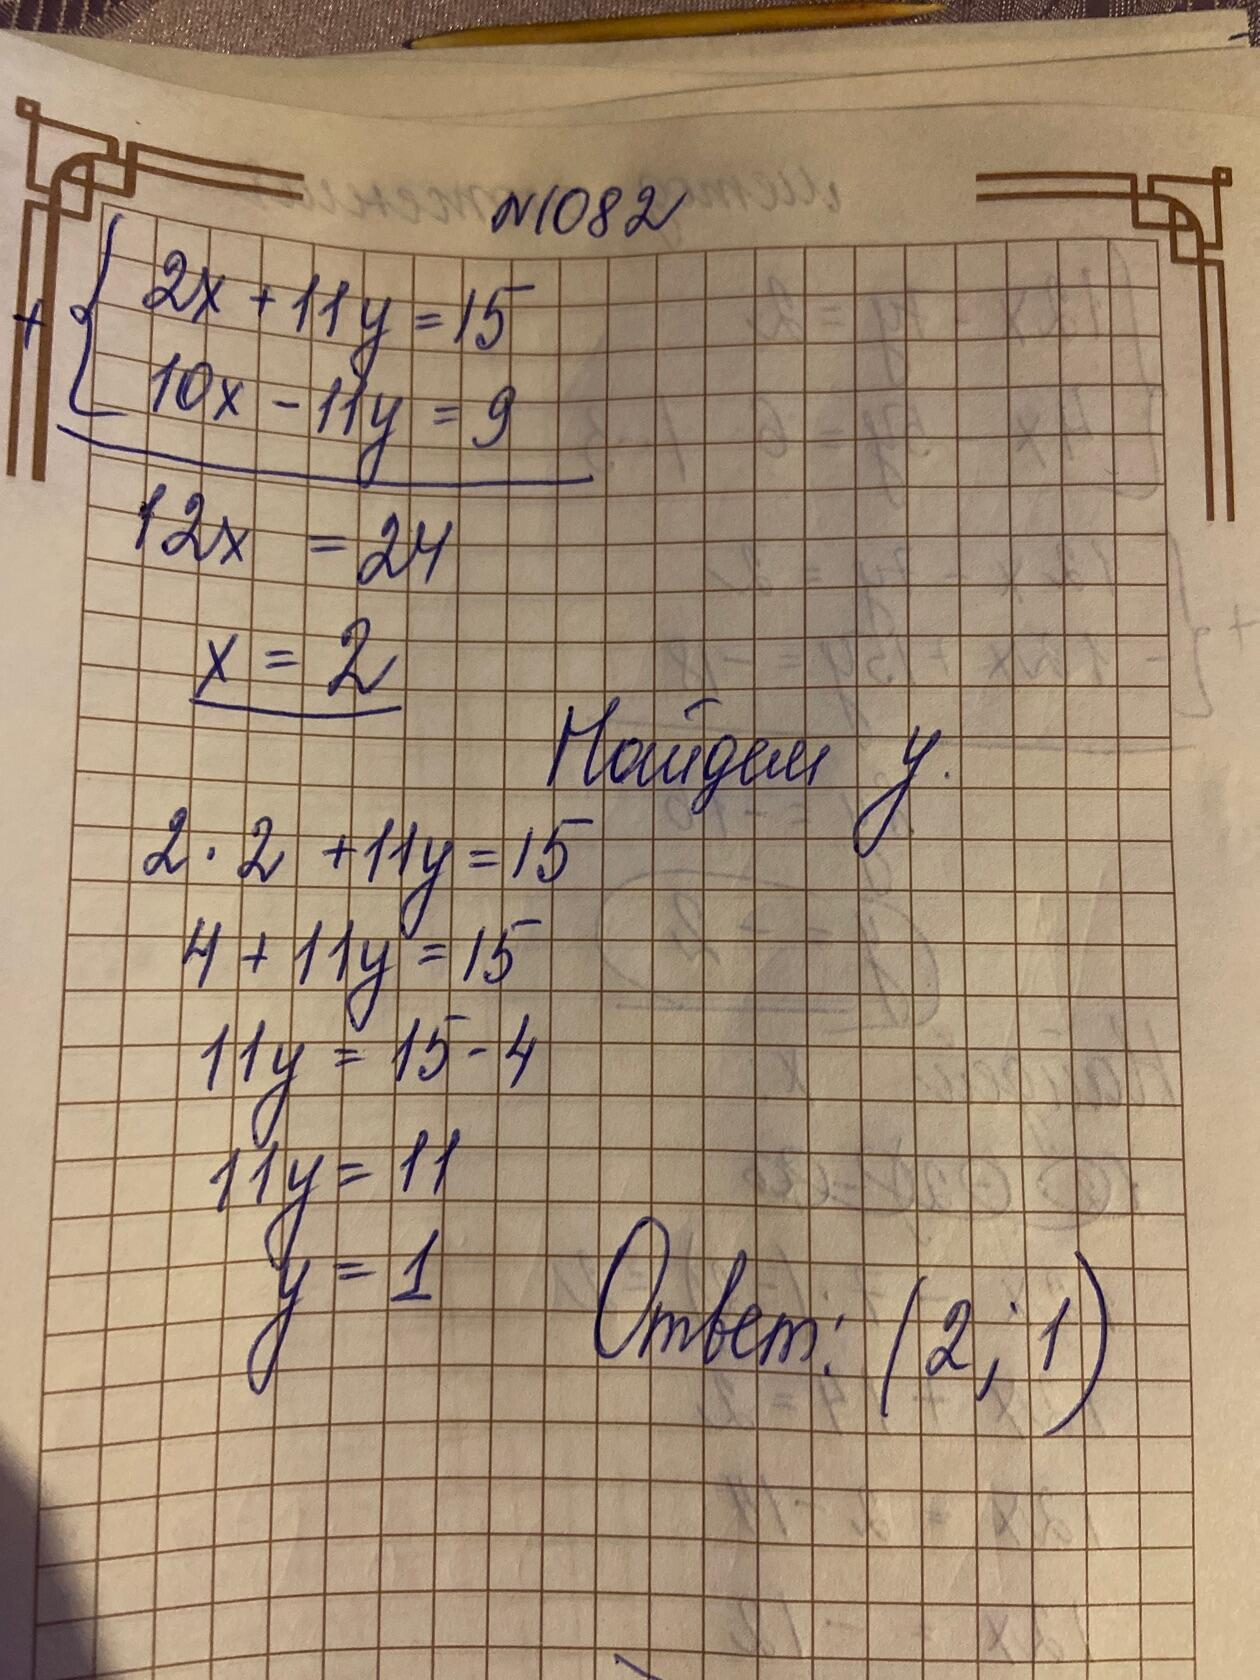 N1082
2x + 11y = 15
+
10x - 11y = 9
12x = 24
x = 2
Найдем y.
2 · 2 + 11y = 15
4 + 11y = 15
11y = 15 - 4
11y = 11
y = 1
Ответ: (2; 1)